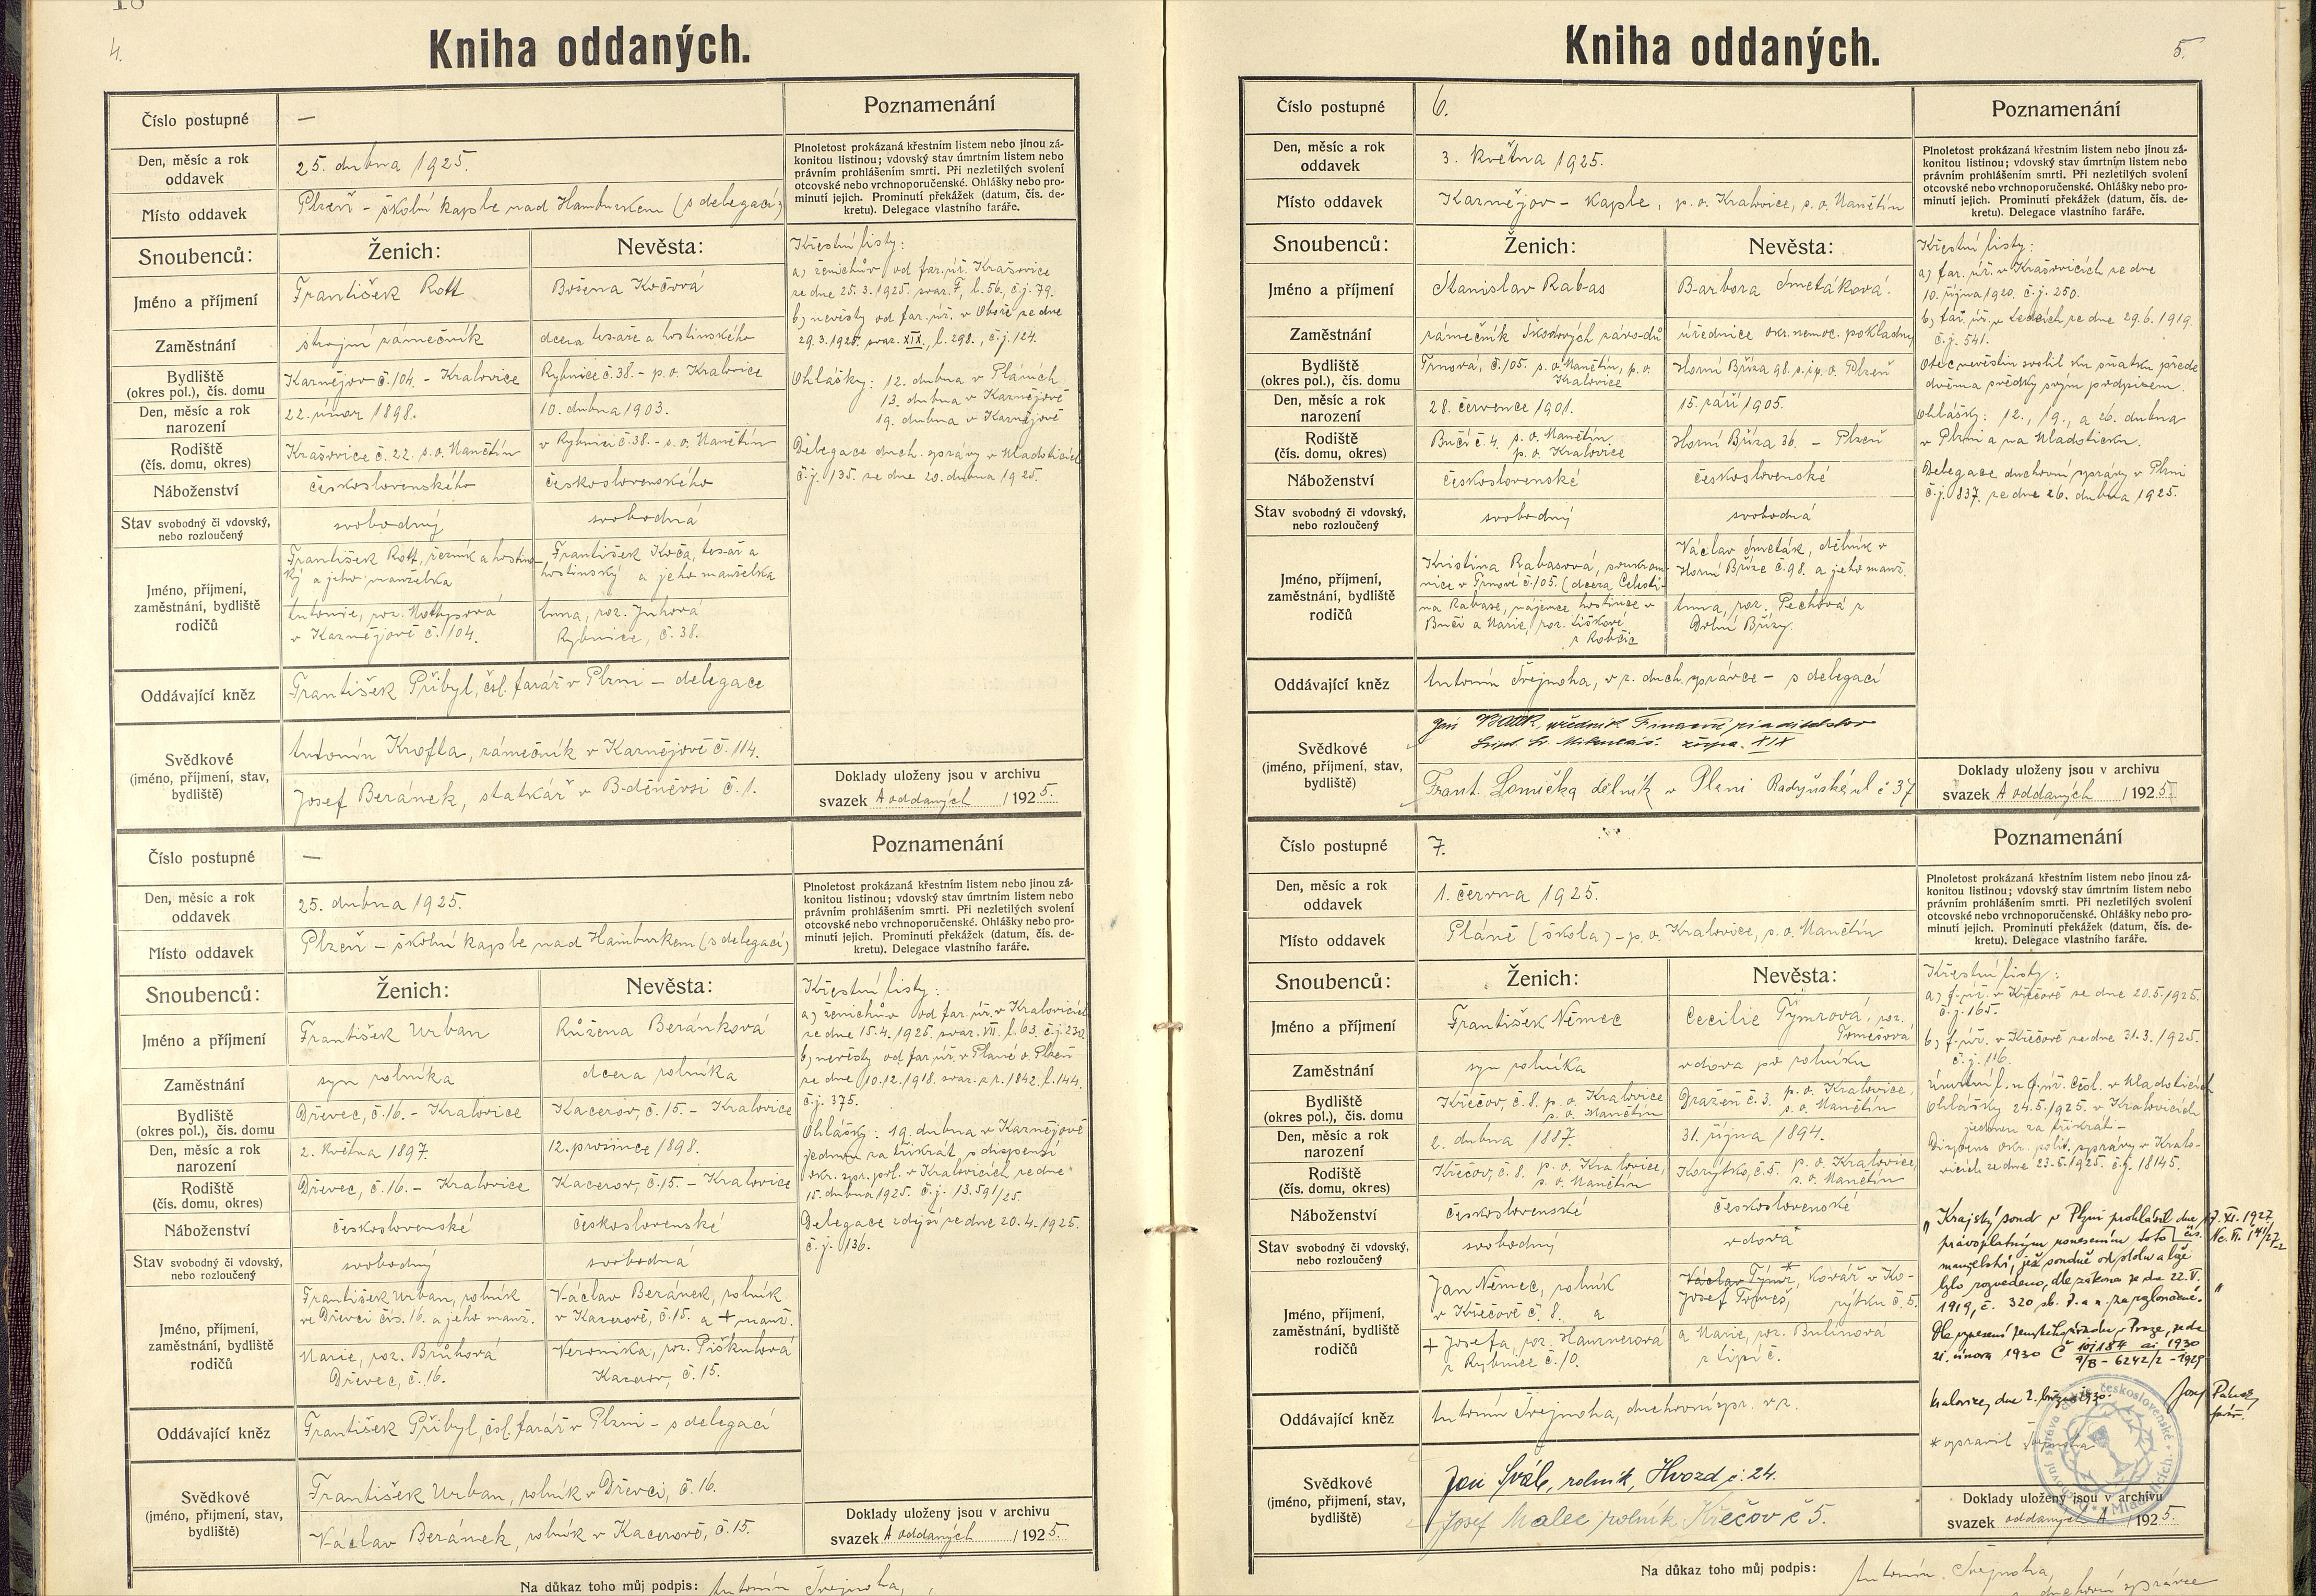 18
4.
Kniha oddaných.
Číslo postupné —
Poznamenání
Plnoletost prokázaná křestním listem nebo jinou zá-
konitou listinou; vdovský stav úmrtním listem nebo
právním prohlášením smrti. Při nezletilých svolení
otcovské nebo vrchnoporučenské. Ohlášky nebo pro-
minutí jejich. Prominutí překážek (datum, čís. de-
kretu). Delegace vlastního faráře.
Den, měsíc a rok
oddavek
25. dubna 1925.
Místo oddavek
Plzeň - školní kaple nad Hamburkem (s delegací)
Snoubenců: Ženich: Nevěsta:
Jméno a příjmení
František Rott
Božena Kočová
Zaměstnání
strojní zámečník
dcera tesaře a hostinského
Bydliště
(okres pol.), čís. domu
Karnějov č. 104. - Kralovice
Rybnice č. 38. - p. o. Kralovice
Den, měsíc a rok
narození
22. únor 1898.
10. dubna 1903.
Rodiště
(čís. domu, okres)
Krašovice č. 22. s. o. Manětín
v Rybnici č. 38. - s. o. Manětín
Náboženství
československého
československého
Stav svobodný či vdovský,
nebo rozloučený
svobodný
svobodná
Jméno, příjmení,
zaměstnání, bydliště
rodičů
František Rott, řezník a hostins-
ký a jeho manželka
Antonie, roz.
v Karnějově č. 104.
František Koča, tesař a
hostinský a jeho manželka
Anna, roz. Juhová
Rybnice, č. 38.
Oddávající kněz
František Přibyl, čsl. farář v Plzni - delegace
Svědkové
(jméno, příjmení, stav,
bydliště)
Antonín Krofta, zámečník v Karnějově č. 114.
Josef Beránek, statkář v Bděněvsi č. 1.
Křestní listy:
a) ženichův od far. úř. Krašovice
ze dne 25. 3. 1925. svaz. F, l. 56., č. j. 79.
b) nevěsty od far. úř. v Oboře ze dne
29. 3. 1925. svaz. XIX., l. 298., č. j. 124.
Ohlášky: 12. dubna v Pláních
13. dubna v Karnějově
19. dubna v Karnějově
Delegace duch. správy v Mladoticích
č. j. 135. ze dne 20. dubna 1925.
Doklady uloženy jsou v archivu
svazek A oddaných / 1925.
Číslo postupné —
Poznamenání
Plnoletost prokázaná křestním listem nebo jinou zá-
konitou listinou; vdovský stav úmrtním listem nebo
právním prohlášením smrti. Při nezletilých svolení
otcovské nebo vrchnoporučenské. Ohlášky nebo pro-
minutí jejich. Prominutí překážek (datum, čís. de-
kretu). Delegace vlastního faráře.
Den, měsíc a rok
oddavek
25. dubna 1925.
Místo oddavek
Plzeň - školní kaple nad Hamburkem (s delegací)
Snoubenců: Ženich: Nevěsta:
Jméno a příjmení
František Urban
Růžena Beránková
Zaměstnání
syn rolníka
dcera rolníka
Bydliště
(okres pol.), čís. domu
Dřevec, č. 16. - Kralovice
Kacerov, č. 15. - Kralovice
Den, měsíc a rok
narození
2. května 1897.
12. prosince 1898.
Rodiště
(čís. domu, okres)
Dřevec, č. 16. - Kralovice
Kacerov, č. 15. - Kralovice
Náboženství
československé
československé
Stav svobodný či vdovský,
nebo rozloučený
svobodný
svobodná
Jméno, příjmení,
zaměstnání, bydliště
rodičů
František Urban, rolník
ve Dřevci čís. 16. a jeho manž.
Marie, roz. Brůhová
Dřevec, č. 16.
Václav Beránek, rolník
v Kacerově, č. 15. a + manž.
Veronika, roz. Piškulová
Kacerov, č. 15.
Oddávající kněz
František Přibyl, čsl. farář v Plzni - s delegací
Svědkové
(jméno, příjmení, stav,
bydliště)
František Urban, rolník v Dřevci, č. 16.
Václav Beránek, rolník v Kacerově, č. 15.
Křestní listy:
a) ženichův od far. úř. v Kralovicích
ze dne 15. 4. 1925. svaz. VII, l. 63, č. j. 230.
b) nevěsty od far. úř. v Plané o. Plzeň
ze dne 10. 12. 1918. svaz. z r. 1842. l. 144.
č. j. 375.
Ohlášky: 19. dubna v Karnějově
jednou za třikrát s dispensí
okr. spr. pol. v Kralovicích ze dne
15. dubna 1925. č. j. 13.591/25.
Delegace zdejší ze dne 20. 4. 1925.
č. j. 136.
Doklady uloženy jsou v archivu
svazek A oddaných / 1925.
Na důkaz toho můj podpis: Antonín Trejnoha,
Kniha oddaných.
5.
Číslo postupné 6.
Poznamenání
Plnoletost prokázaná křestním listem nebo jinou zá-
konitou listinou; vdovský stav úmrtním listem nebo
právním prohlášením smrti. Při nezletilých svolení
otcovské nebo vrchnoporučenské. Ohlášky nebo pro-
minutí jejich. Prominutí překážek (datum, čís. de-
kretu). Delegace vlastního faráře.
Den, měsíc a rok
oddavek
3. května 1925.
Místo oddavek
Karnějov - kaple, p. o. Kralovice, s. o. Manětín
Snoubenců: Ženich: Nevěsta:
Jméno a příjmení
Stanislav Rabas
Barbora Smetáková.
Zaměstnání
zámečník Škodových závodů
úřednice okr. nemoc. pokladny
Bydliště
(okres pol.), čís. domu
Trnová, č. 105. s. o. Manětín, p. o.
Kralovice
Horní Bříza 98. s. i p. o. Plzeň
Den, měsíc a rok
narození
28. července 1901.
15. září 1905.
Rodiště
(čís. domu, okres)
Bučí č. 4. s. o. Manětín
p. o. Kralovice
Horní Bříza 36. - Plzeň
Náboženství
československé
československé
Stav svobodný či vdovský,
nebo rozloučený
svobodný
svobodná
Jméno, příjmení,
zaměstnání, bydliště
rodičů
Kristina Rabasová, soukrom-
nice v Trnové č. 105. (dcera Celesti-
na Rabase, nájemce hostince v
Bučí a Marie, roz. Liškové
z Robčic
Václav Smeták, dělník v
Horní Bříze č. 98. a jeho manž.
Anna, roz. Pechová z
Dolní Břízy.
Oddávající kněz
Antonín Trejnoha, v z. duch. správce - s delegací
Svědkové
(jméno, příjmení, stav,
bydliště)
úředník
Lipt. Sv. Mikuláš. župa. XIX
Frant. Lomička dělník v Plzni Radyňská ul č 37
Křestní listy:
a) far. úř. v Krašovicích ze dne
10. října 1920. č. j. 250.
b) far. úř. v Ledcích ze dne 29. 6. 1919.
č. j. 541.
Otec nevěstin svolil ku sňatku přede
dvěma svědky svým podpisem.
Ohlášky: 12., 19., a 26. dubna
v Plzni a na Mladoticku.
Delegace duchovní správy v Plzni
č. j. 837. ze dne 26. dubna 1925.
Doklady uloženy jsou v archivu
svazek A oddaných / 1925
Číslo postupné 7.
Poznamenání
Plnoletost prokázaná křestním listem nebo jinou zá-
konitou listinou; vdovský stav úmrtním listem nebo
právním prohlášením smrti. Při nezletilých svolení
otcovské nebo vrchnoporučenské. Ohlášky nebo pro-
minutí jejich. Prominutí překážek (datum, čís. de-
kretu). Delegace vlastního faráře.
Den, měsíc a rok
oddavek
1. června 1925.
Místo oddavek
Pláně (škola) - p. o. Kralovice, s. o. Manětín
Snoubenců: Ženich: Nevěsta:
Jméno a příjmení
František Němec
Cecilie Týmrová, roz.
Tomešová
Zaměstnání
syn rolníka
vdova po rolníku
Bydliště
(okres pol.), čís. domu
Křečov, č. 8. p. o. Kralovice
s. o. Manětín
Dražeň č. 3. p. o. Kralovice,
s. o. Manětín
Den, měsíc a rok
narození
2. dubna 1887.
31. října 1894.
Rodiště
(čís. domu, okres)
Křečov, č. 8. p. o. Kralovice,
s. o. Manětín
Korýtko, č. 5. p. o. Kralovice,
s. o. Manětín
Náboženství
československé
československé
Stav svobodný či vdovský,
nebo rozloučený
svobodný
vdova
Jméno, příjmení,
zaměstnání, bydliště
rodičů
Jan Němec, rolník
v Křečově č. 8. a
+ Josefa, roz. Hanznerová
z Rybnice č. 10.
Václav Týmr,* kovář v Ko-
Josef Tomeš, rýtku č. 5.
a Marie, roz. Bulínová
z Lipí č.
Oddávající kněz
Antonín Trejnoha, duchovní spr. v z.
Svědkové
(jméno, příjmení, stav,
bydliště)
Jan Šváb, rolník, Hvozd č. 24.
Josef Malec rolník Křečov č 5.
Křestní listy:
a) f. úř. v Křečově ze dne 20. 5. 1925.
č. j. 165.
b) f. úř. v Křečově ze dne 31. 3. 1925.
č. j. 116.
Úmrtní l. u f. úř. čsl. v Mladoticích
Ohlášky 24. 5. 1925. v Kralovicích
jednou za třikrát -
Dispens okr. polit. správy v Kralo-
vicích ze dne 23. 5. 1925. č. j. 18145.
„Krajský soud v Plzni prohlásil dne 17. XI. 1927
právoplatným usnesením toto čís. Nc. VI. 141/27-2
manželství, jež soudně od stolu a lože
bylo rozvedeno, dle zákona ze dne 22. V.
1919, č. 320, sb. z. a n. za rozloučené."
Dle vynesení zemského úřadu v Praze, ze dne
21. února 1930 č 101184 ai 1930
9/B - 6242/2 - 1929
Kralovice, dne 2. března 1930. Josef
farář.
* opravil Trejnoha
Doklady uloženy jsou v archivu
svazek oddaných A / 1925.
Na důkaz toho můj podpis: Antonín Trejnoha,
duchovní správce